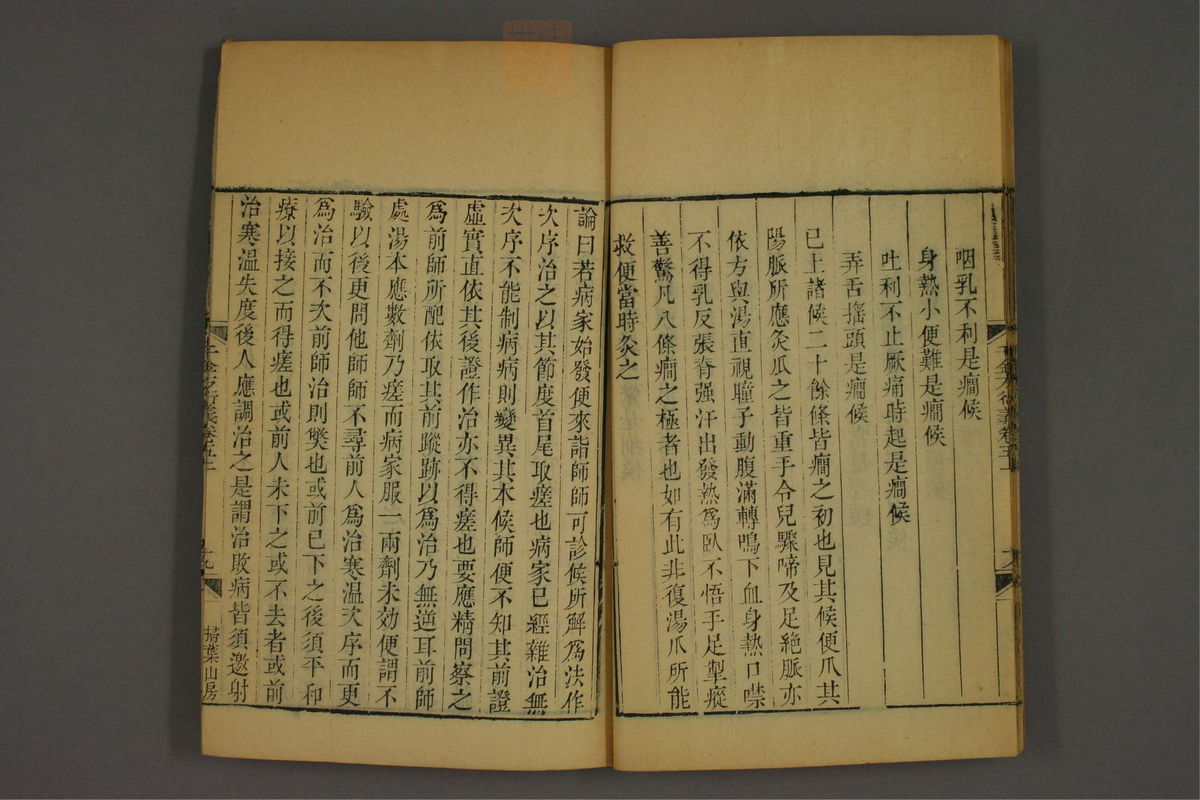 咽乳不利是癎候
身熱小便難是癎候
吐利不止厥痛時起是癎候
弄舌搖頭是癎候
已上諸候二十餘條皆癎之初也見其候便爪其
陽脈所應灸爪之皆重手令兒驟啼及足絕脈亦
依方與湯直視瞳子動腹滿轉鳴下血身熱口噤
不得乳反張脊强汗出發熱爲臥不悟手足掣瘲
善驚凡八條癎之極者也如有此非復湯爪所能
救便當時灸之
論曰若病家始發便來詣師師可診候所解爲法作
次序治之以其節度首尾取瘥也病家已經雜治無
次序不能制病病則變異其本候師便不知其前證
虛實直依其後證作治亦不得瘥也要應精問察之
爲前師所配依取其前蹤跡以爲治乃無逆耳前師
處湯本應數劑乃瘥而病家服一兩劑未効便謂不
驗以後更問他師師不尋前人爲治寒溫次序而更
爲治而不次前師治則獘也或前已下之後須平和
療以接之而得瘥也或前人未下之或不去者或前
治寒溫失度後人應調治之是謂治敗病皆須邀射
千金方衍義卷五上
十九
掃葉山房